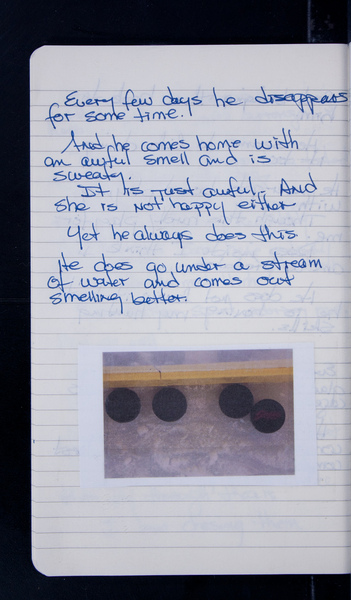 Every few days he disappears
for some time.
And he comes home with
an awful smell and is
sweaty.
It is just awful. And
she is not happy either
Yet he always does this
He does go under a stream
of water and comes out
smelling better.